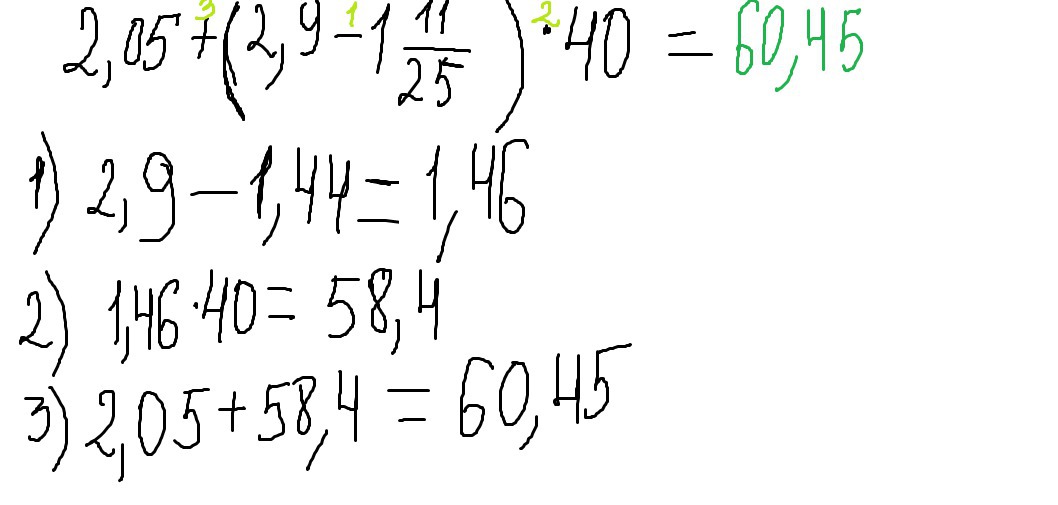 2,05 + (2,9 - 1 11/25) · 40 = 60,45
3 1 2
1) 2,9 - 1,44 = 1,46
2) 1,46 · 40 = 58,4
3) 2,05 + 58,4 = 60,45